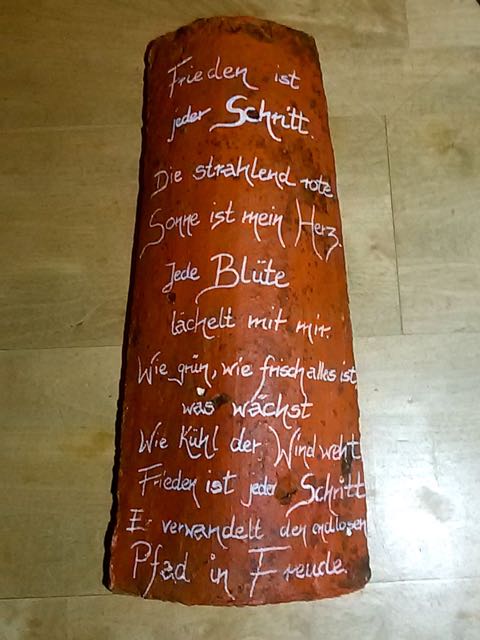 Frieden ist
jeder Schritt.
Die strahlend rote
Sonne ist mein Herz.
Jede Blüte
lächelt mit mir.
Wie grün, wie frisch alles ist,
was wächst
Wie Kühl der Wind weht
Frieden ist jeder Schritt
Er verwandelt den endlosen
Pfad in Freude.